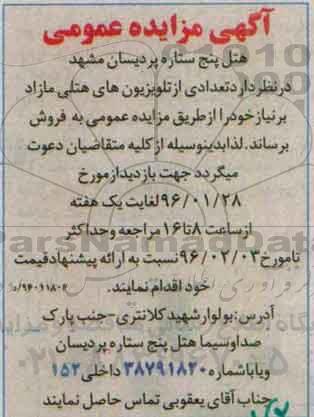 آگهی مزایده عمومی
هتل پنج ستاره پردیسان مشهد
درنظردارد تعدادی از تلویزیون های هتلی مازاد
برنیاز خود را از طریق مزایده عمومی به فروش
برساند. لذا بدینوسیله از کلیه متقاضیان دعوت
میگردد جهت بازدید از مورخ
۹۶/۰۱/۲۸ لغایت یک هفته
از ساعت ۸ تا ۱۶ مراجعه و حداکثر
تا مورخ ۹۶/۰۲/۰۲ نسبت به ارائه پیشنهاد قیمت
خود اقدام نمایند.
آدرس: بولوار شهید کلانتری - جنب پارک
صدا و سیما هتل پنج ستاره پردیسان
و یا با شماره ۳۸۷۹۱۸۲۰ داخلی ۱۵۲
جناب آقای یعقوبی تماس حاصل نمایند
ParsNamadData